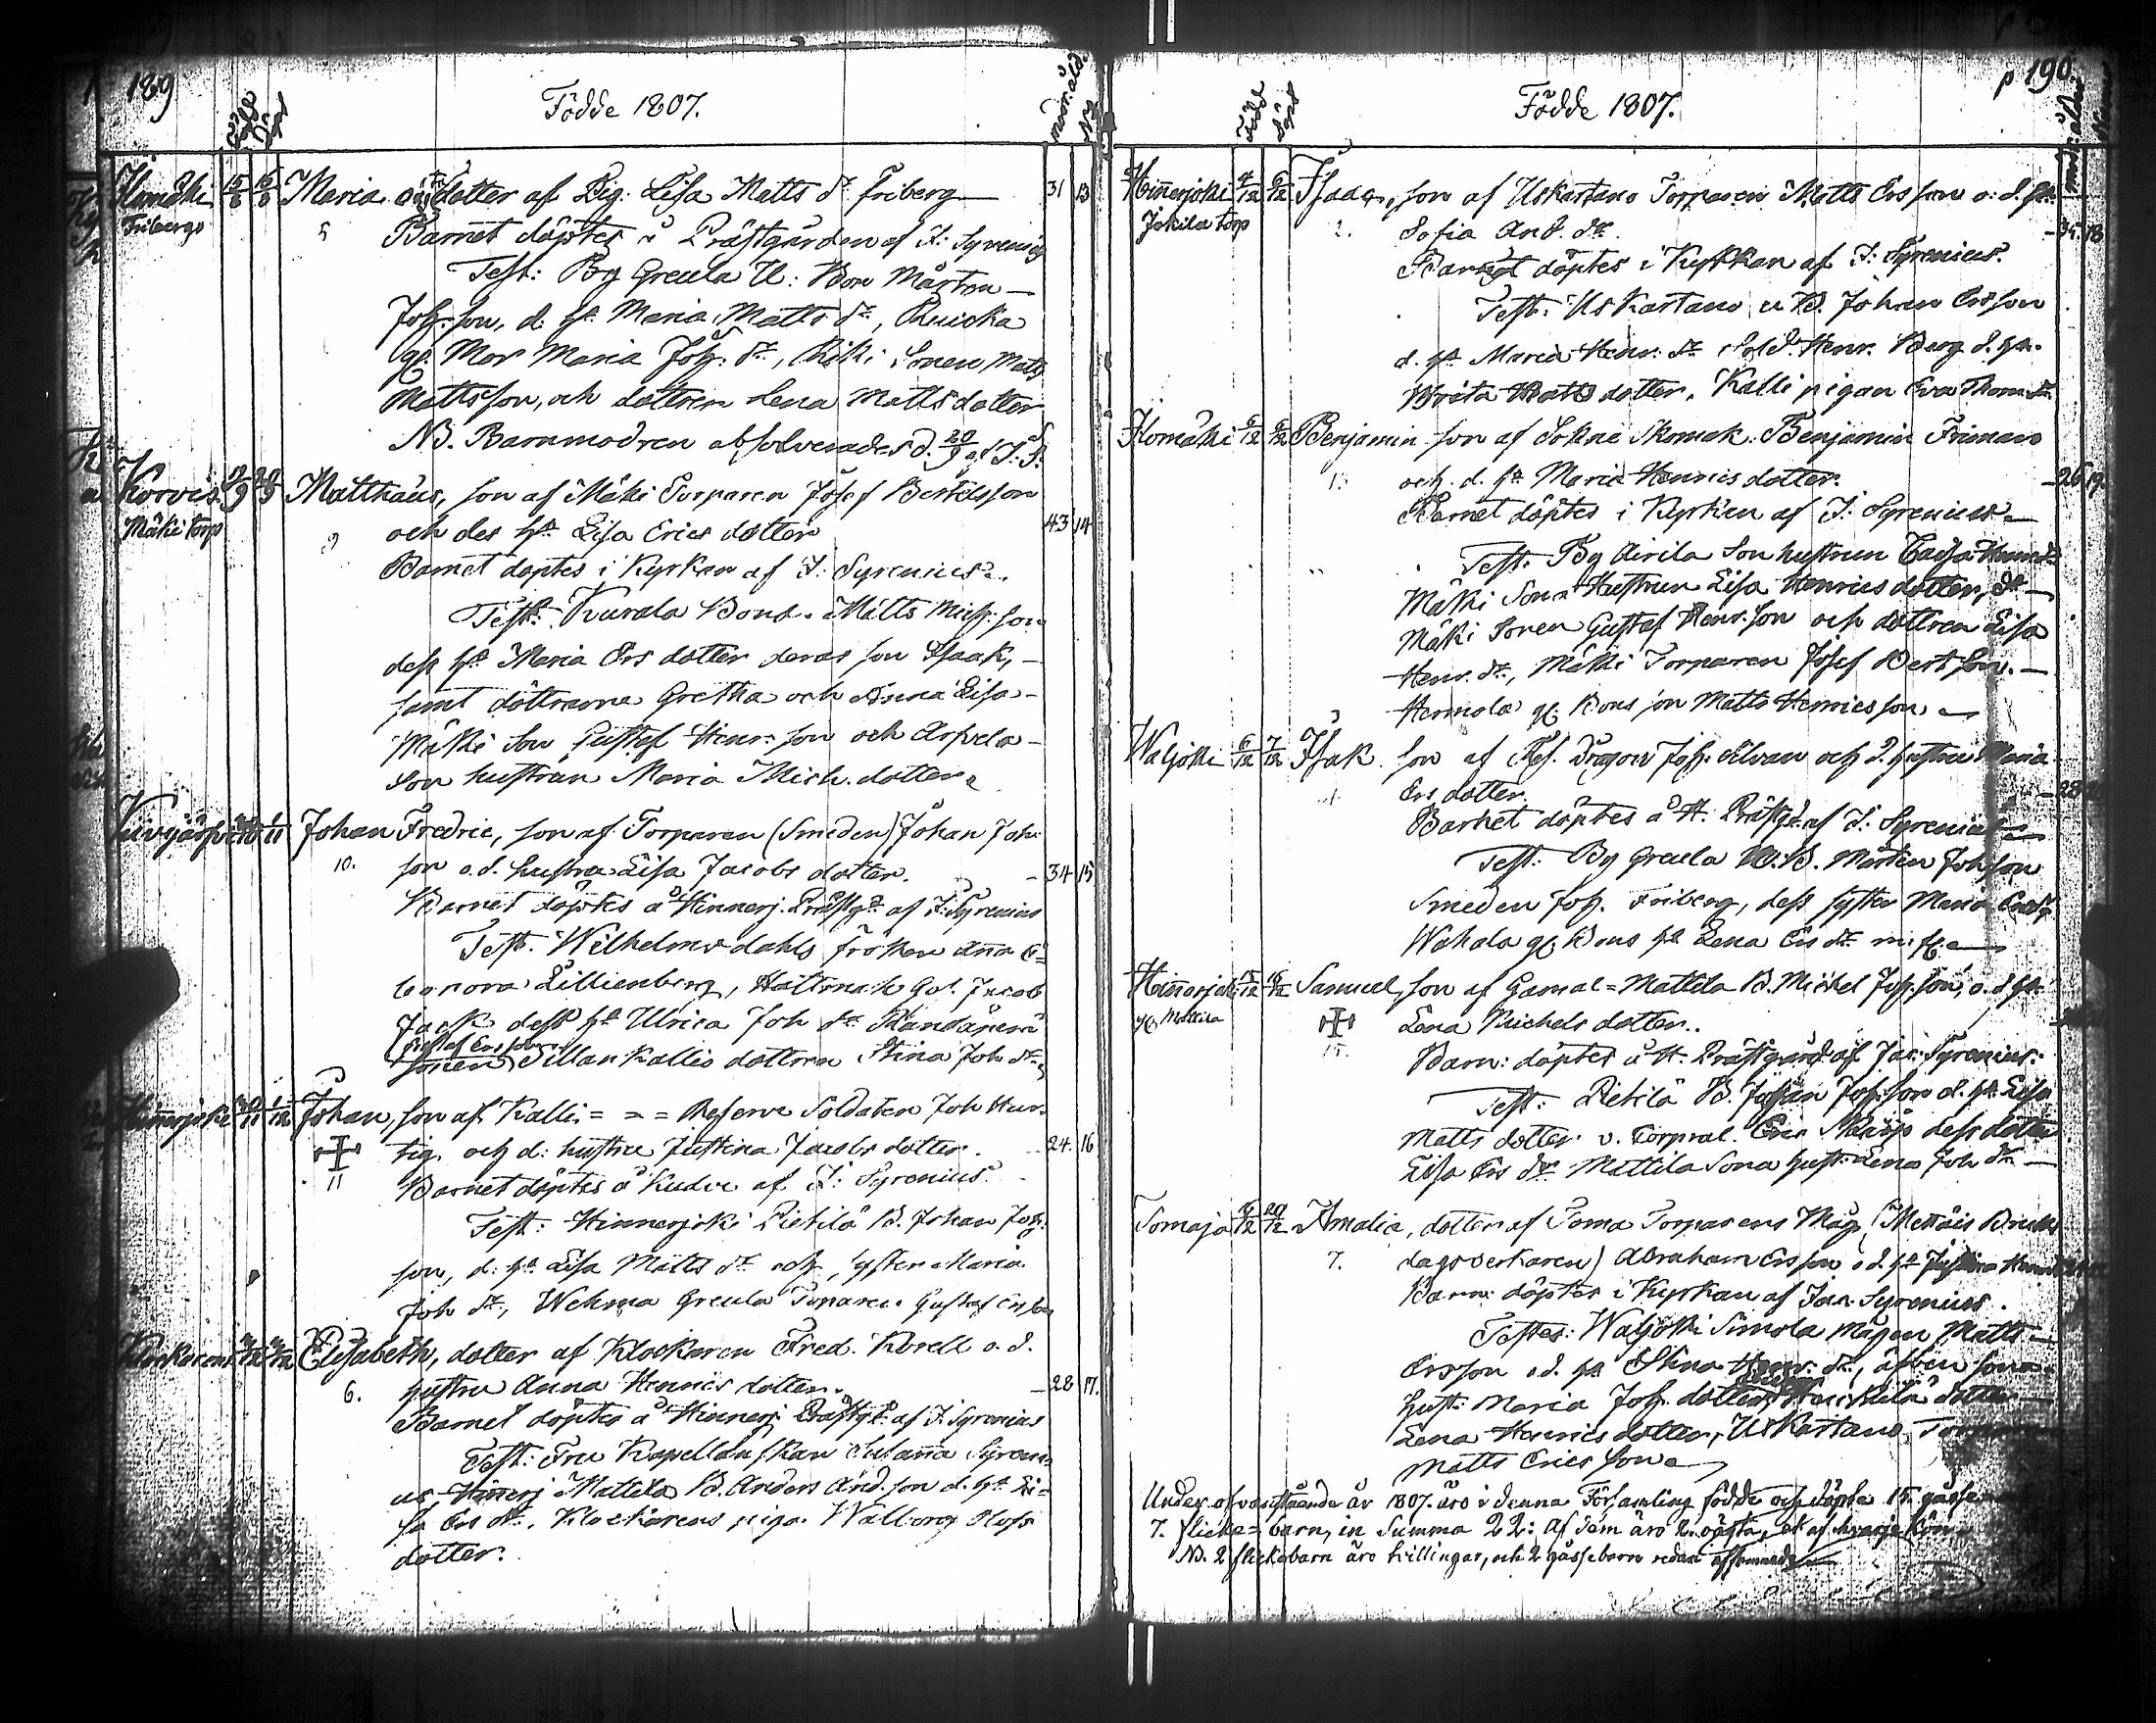 189
Födde 1807.
Födde
Döpt
mor: åld.
No
Ilmäki 15/8 16/8 Maria. oä dotter af Pig. Lisa Matts dr Friberg 31 13
Fribergs
Barnet döptes i Prästgården af J: Syrenius
Test: By Greula U: Bon Mårten
Joh: son, d. ha Maria Matts dr, Ruicka
gl. Mor Maria Joh: dr, Riki Sonen Matts
Mattsson, och dottren Lena Matts dotter
NB. Barnmodren absolverades d. 20/9 af J: S:
Korvis 19/9 20/9 Matthäus, son af Mäki Torparen Josef Bertilsson
Mäki torp
och des ha Lisa Erics dotter 43 14
Barnet döptes i Kyrkan af J: Syrenius.
Test: Kurala Bond. Matts Mich: son
dess ha Maria Ers dotter deras son Isaak,
samt döttrarna Gretha och Anna Lisa
Mäki Son Gustaf Henr: son och Arpela
Son hustrun Maria Mich. dotter
Johan Fredric, son af Torparen (Smeden) Johan Joh:
10. son o. d. hustru Lisa Jacobs dotter. 34 15
Barnet döptes å Hinnerj. Prästgd af J: Syrenius
Test. Wilhelms dahls fröken Anna E=
leonora Lillienberg, Hattmak. Ges. Jacob
Jack dess ha Ulrica Joh dr Randänem
(Gustaf Ersson)
Sonen Sillankallio dottren Stina Joh dr
Hinnerjoki 30/11 1/12 Johan, son af Kalli = = = Reserve Soldaten Joh Hur-
tig och d: hustru Justina Jacobs dotter. 24. 16
11
Barnet döptes å Kudre af J: Syrenius.
Test: Hinnerjoki Pietilä B. Johan Joh:
son, d: ha Lisa Matts dr och syster Maria
Joh dr, Wehma Greula Torparen Gustaf Ersson
Klockarens Elisabeth, dotter af Klockaren Fred. Korell o. d.
6. hustru Anna Henrics dotter. 28 17.
Barnet döptes å Hinnerj. Prästgd af J: Syrenius
Test: Fru Kapellanskan Susanna Syreni-
us, Hinnerj Mattila B. Anders And. son d. ha Li=
sa Ers dr. Klockarens piga Walborg Olofs
dotter.
p 190.
Födde 1807.
Födde
döpt
Hinnerjoki 4/12 6/12 Isaac, son af Uskartano Torparen Matts Ersson o. d. ha
Jokila torp
2. Sofia And. dr. 35. 18
Barnet döptes i Kyrkan af J: Syrenius.
Test: Uskartano u B. Johan Ersson
d. ha Maria Henr: dr Sold. Henr. Berg d. ha.
Brita Matts dotter. Kalli pigan Eva Thom. dr.
Ilomäki 5/12 6/12 Benjamin son af Sokne Skomak. Benjamin Friman
13 och. d. ha Maria Henrics dotter. 26 19.
Barnet döptes i Kyrkan af J: Syrenius
Test. By Airila Son hustrun Caisa
Mäki Sons Hustrun Lisa Henrics dotter, dr
Mäki Sonen Gustaf Henr. son och dottren Lisa
Henr. dr, Mäki Torparen Josef Bert son.
Hennola gl. Bons son Matts Henricsson.
Waljoki 6/12 7/12 Isak. son af Res. Dragon Joh: Alvan och d. hustru Maria
Ers dotter. 28
Barnet döptes å H. Prästgd. af J: Syrenius
Test: By Greula U. B. Mårten Johsson
Smeden Joh. Friberg, dess syster Maria
Wahala gl. Bons ha Lena Ers dr m: fl.
Hinnerjok 15/12 16/12 Samuel, son af Gamal=Mattila B. Michel Joh. son, o. d ha
gl Mattila
Lena Michels dotter.
15.
Barn: döptes å H. Prästgård af Jac: Syrenius.
Test: Pietilä B. Johan Joh: son d. ha Lisa
Matts dotter. v. Corporal. Eric Skarp dess dotter
Lisa Ers dr. Mattila Sona hust: Lena Joh dr
20/12 Amalia, dotter af Toma Torparens Måg, (Mettäis Bruks
7. dagsverkaren) Abraham Ersson o d. ha Justina
Barn: döptes i Kyrkan af Jac: Syrenius.
Testes: Waljoki Simola mågen Matts
Ersson o d. ha Stina Henr. dr, äfven sona
hust: Maria Joh. dotter, dotter
Lena Henrics dotter, Uskartano
Matts Erics son
Under ofvanstående år 1807. äro i denna Församling födde och döpte 15. gosse
7. flicke=barn, in Summa 22: Af dem äro 2. oäkta, et af hvarje kön
NB. 2 flickebarn äro tvillingar, och 2 gossebarn redan afsomnade